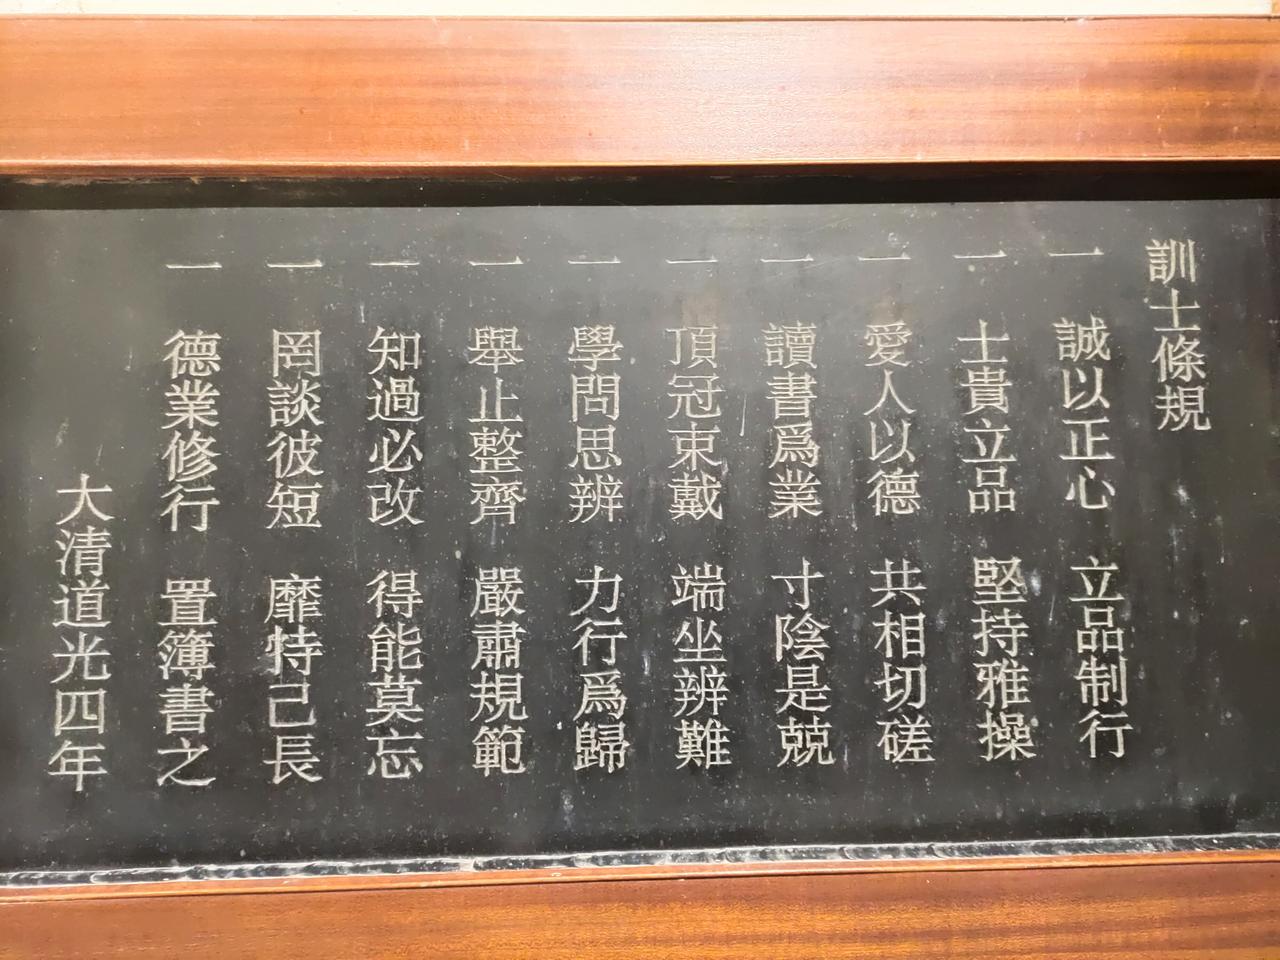 訓士條規
一 誠以正心 立品制行
一 士貴立品 堅持雅操
一 愛人以德 共相切磋
一 讀書爲業 寸陰是兢
一 頂冠束戴 端坐辨難
一 學問思辨 力行爲歸
一 舉止整齊 嚴肅規範
一 知過必改 得能莫忘
一 罔談彼短 靡恃己長
一 德業修行 置簿書之
大清道光四年